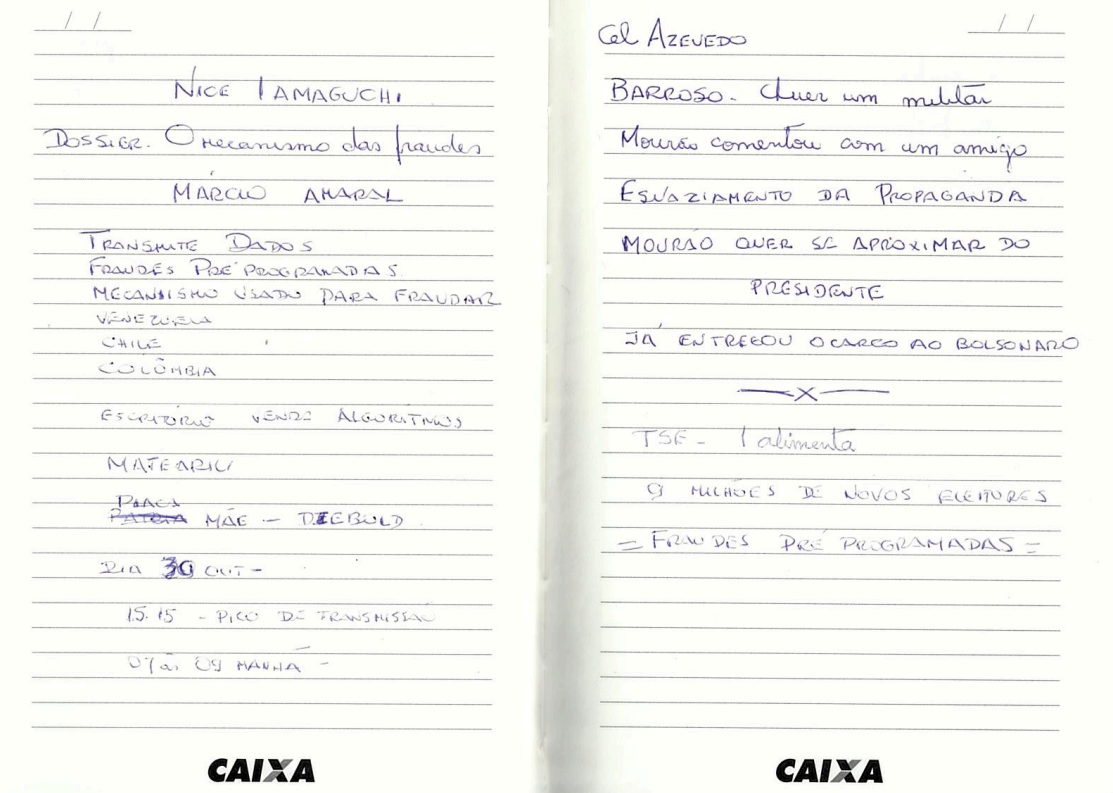 / /
NICE IAMAGUCHI
DOSSIER. O mecanismo das fraudes
MÁRCIO AMARAL
TRANSMITE DADOS
FRAUDES PRÉ PROGRAMADAS
MECANSISMO USADO PARA FRAUDAR
VENEZUELA
CHILE
COLÔMBIA
ESCRITÓRIO VENDE ALGORÍTMOS
PLACA
MÃE - DIEBOLD
DIA 30 OUT -
15.15 - PICO DE TRANSMISSÃO
07 às 09 MANHÃ -
CAIXA
/ /
Cel AZEVEDO
BARROSO. Quer um militar
Mourão comentou com um amigo
ESVAZIAMENTO DA PROPAGANDA
MOURÃO QUER SE APROXIMAR DO
PRESIDENTE
JÁ ENTREGOU O CARGO AO BOLSONARO
—x—
TSE - 1 alimenta
9 MILHÕES DE NOVOS ELEITORES
= FRAUDES PRÉ PROGRAMADAS =
CAIXA